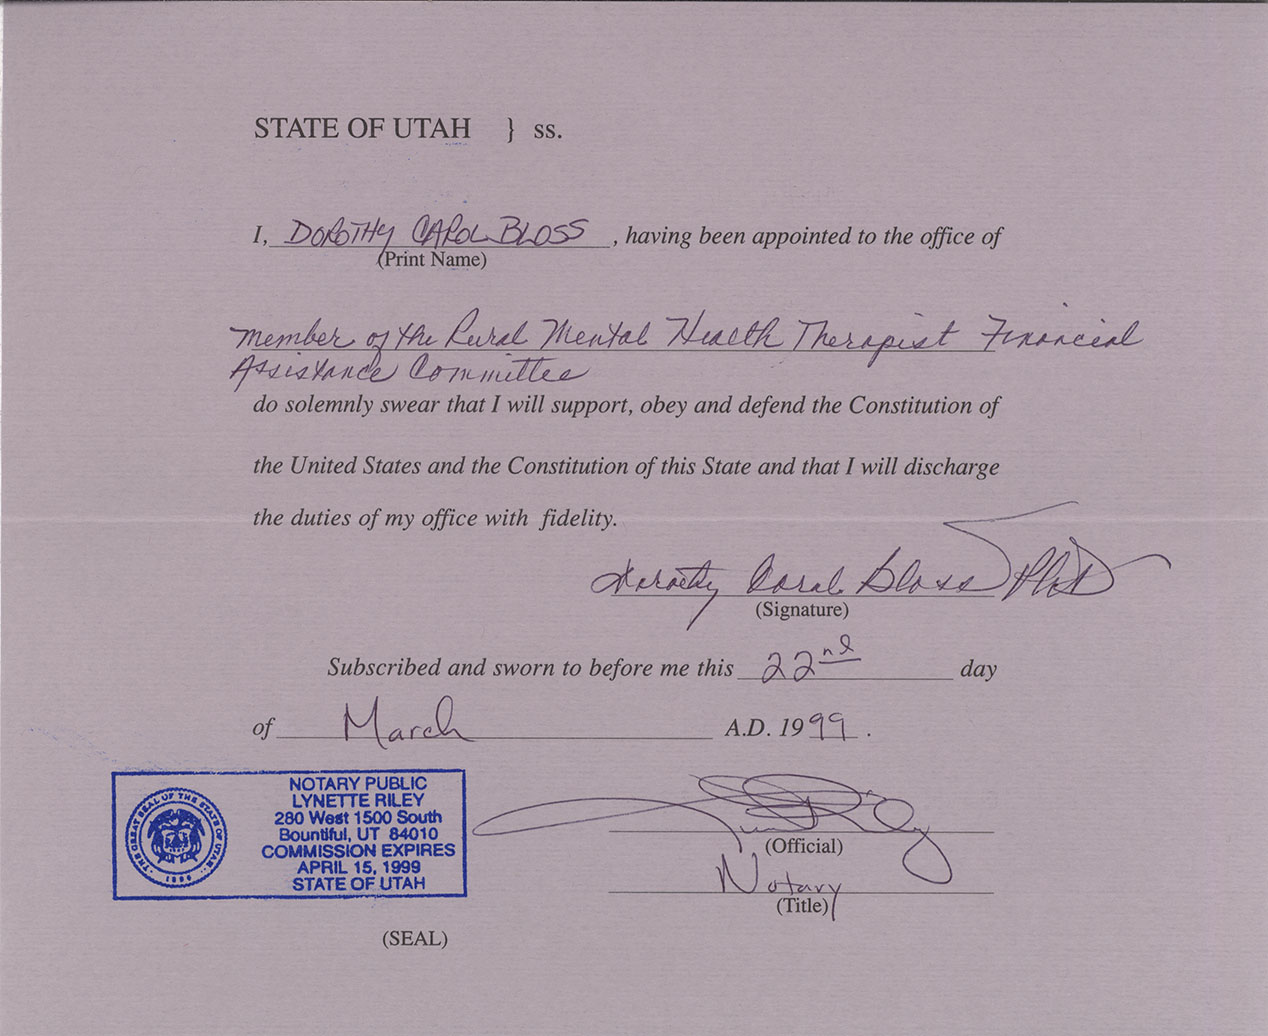 STATE OF UTAH } ss.
I, DOROTHY CAROL BLOSS, having been appointed to the office of
(Print Name)
Member of the Rural Mental Health Therapist Financial
Assistance Committee
do solemnly swear that I will support, obey and defend the Constitution of
the United States and the Constitution of this State and that I will discharge
the duties of my office with fidelity.
Dorothy Carol Bloss PhD
(Signature)
Subscribed and sworn to before me this 22nd day
of March A.D. 1999.
NOTARY PUBLIC
LYNETTE RILEY
280 West 1500 South
Bountiful, UT 84010
COMMISSION EXPIRES
APRIL 15, 1999
STATE OF UTAH
THE GREAT SEAL OF THE STATE OF UTAH
1896
(Official)
Notary
(Title)
(SEAL)